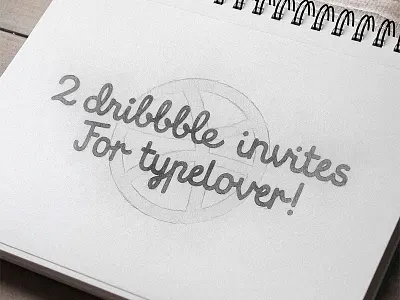 2 dribbble invites
For typelover!